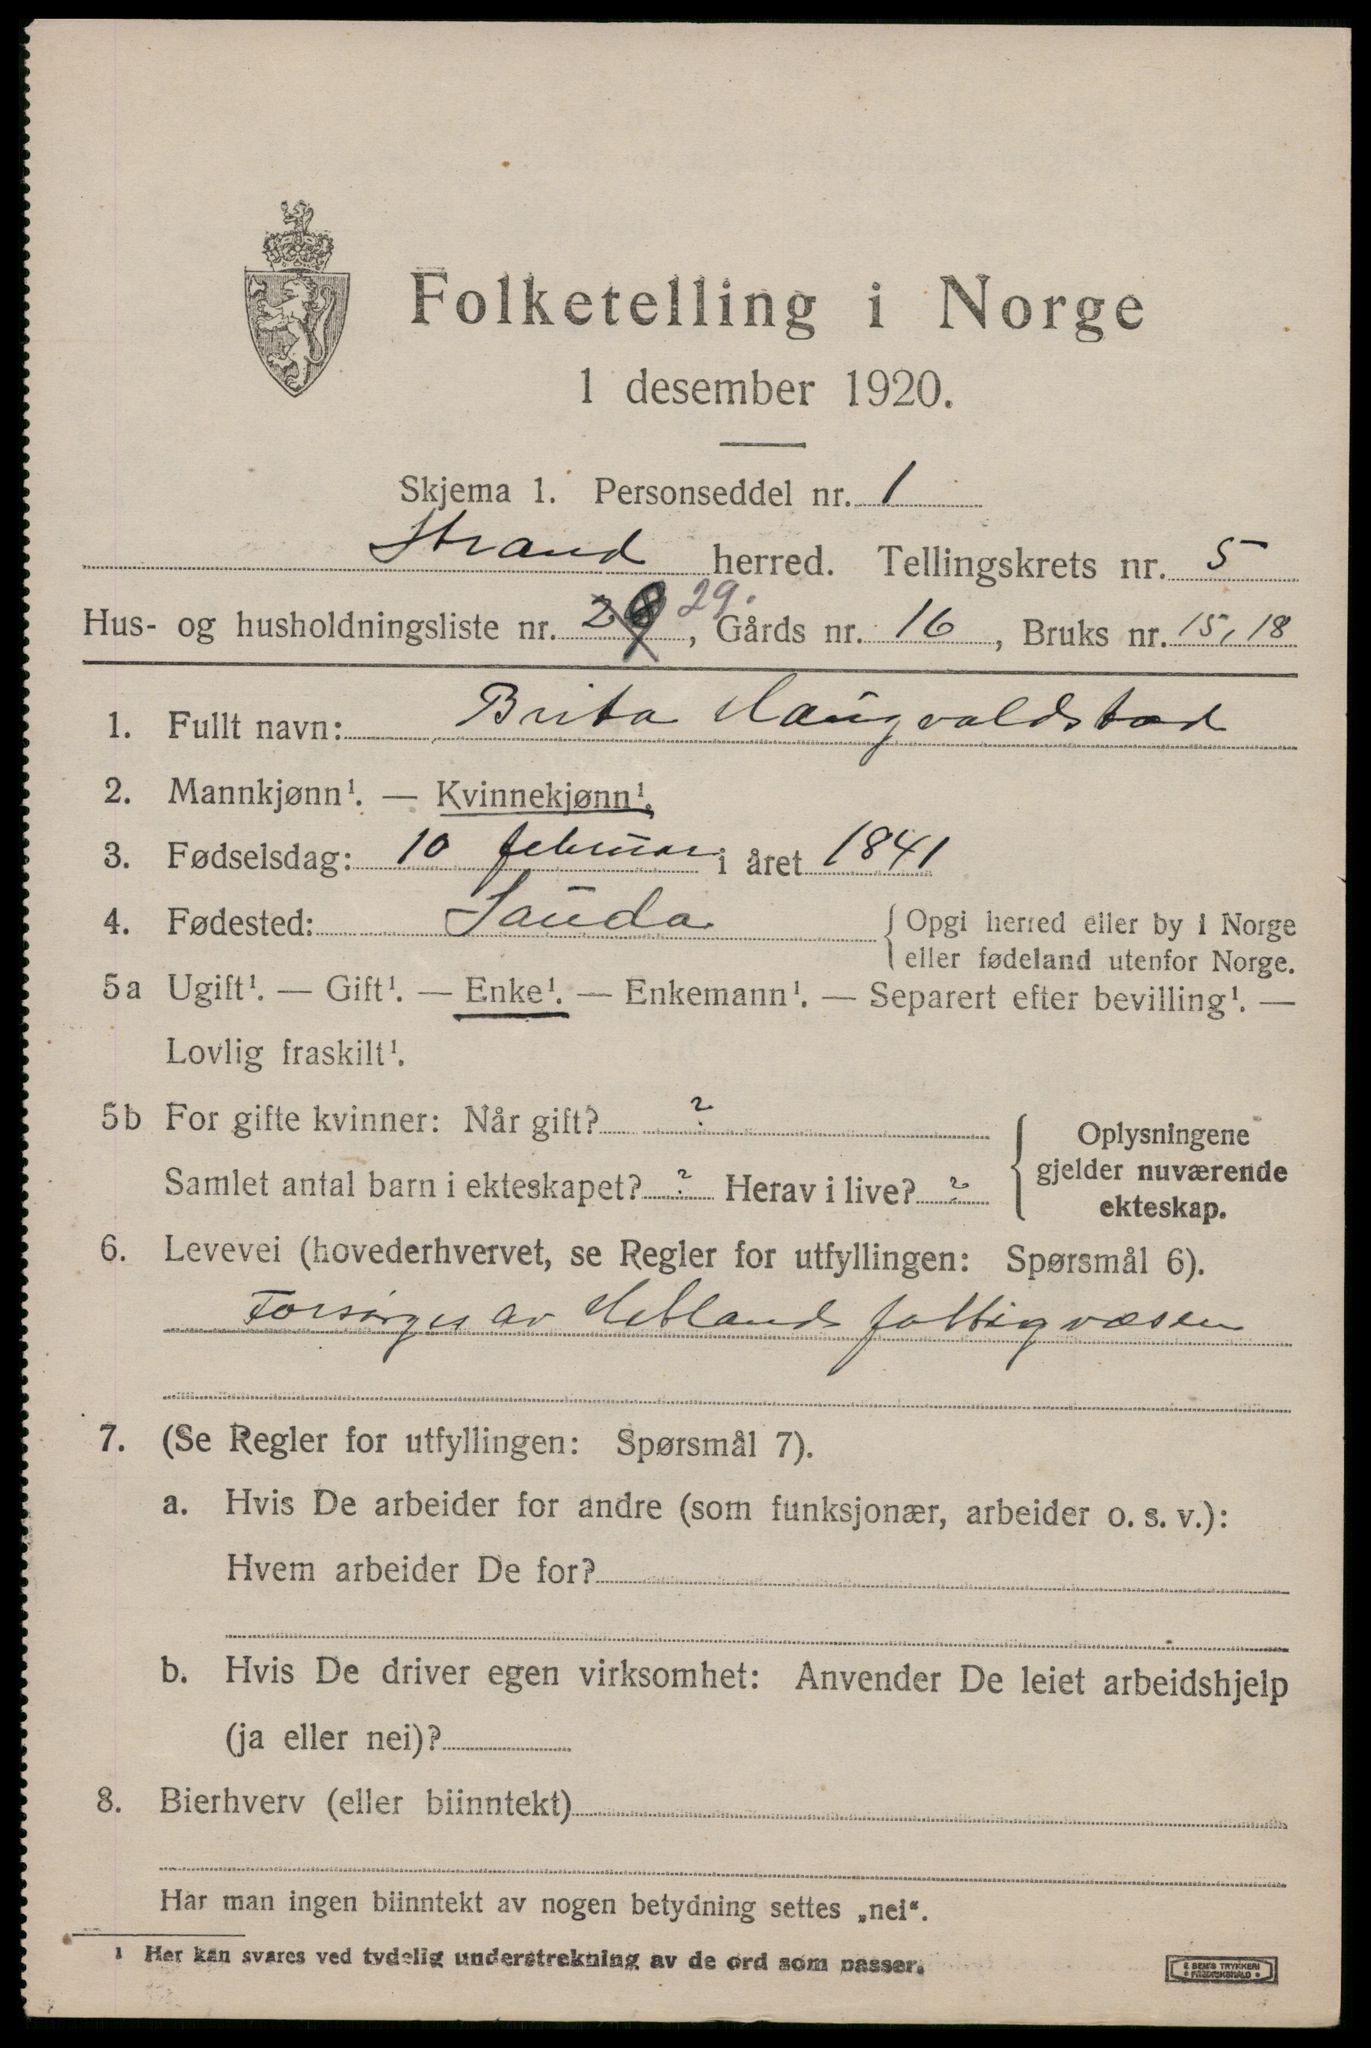 Folketelling i Norge
1 desember 1920.
Skjema 1. Personseddel nr. 1
Strand herred. Tellingskrets nr. 5
Hus- og husholdningsliste nr. 28 29. , Gårds nr. 16 , Bruks nr. 15, 18
1. Fullt navn: Brita Haugvaldstad
2. Mannkjønn¹. — Kvinnekjønn¹.
3. Fødselsdag: 10 februar i året 1841
4. Fødested: Sauda { Opgi herred eller by i Norge
eller fødeland utenfor Norge.
5a Ugift¹. — Gift¹. — Enke¹. — Enkemann¹. — Separert efter bevilling¹. —
Lovlig fraskilt¹.
5b For gifte kvinner: Når gift? ?
Samlet antal barn i ekteskapet? ? Herav i live? ?
{ Oplysningene
gjelder nuværende
ekteskap.
6. Levevei (hovederhvervet, se Regler for utfyllingen: Spørsmål 6).
Forsørges av Hetlands fattigvæsen
7. (Se Regler for utfyllingen: Spørsmål 7).
a. Hvis De arbeider for andre (som funksjonær, arbeider o. s. v.):
Hvem arbeider De for?
b. Hvis De driver egen virksomhet: Anvender De leiet arbeidshjelp
(ja eller nei)?
8. Bierhverv (eller biinntekt)
Har man ingen biinntekt av nogen betydning settes „nei“.
¹ Her kan svares ved tydelig understrekning av de ord som passer.
SEM'S TRYKKERI
FREDRIKSHALD